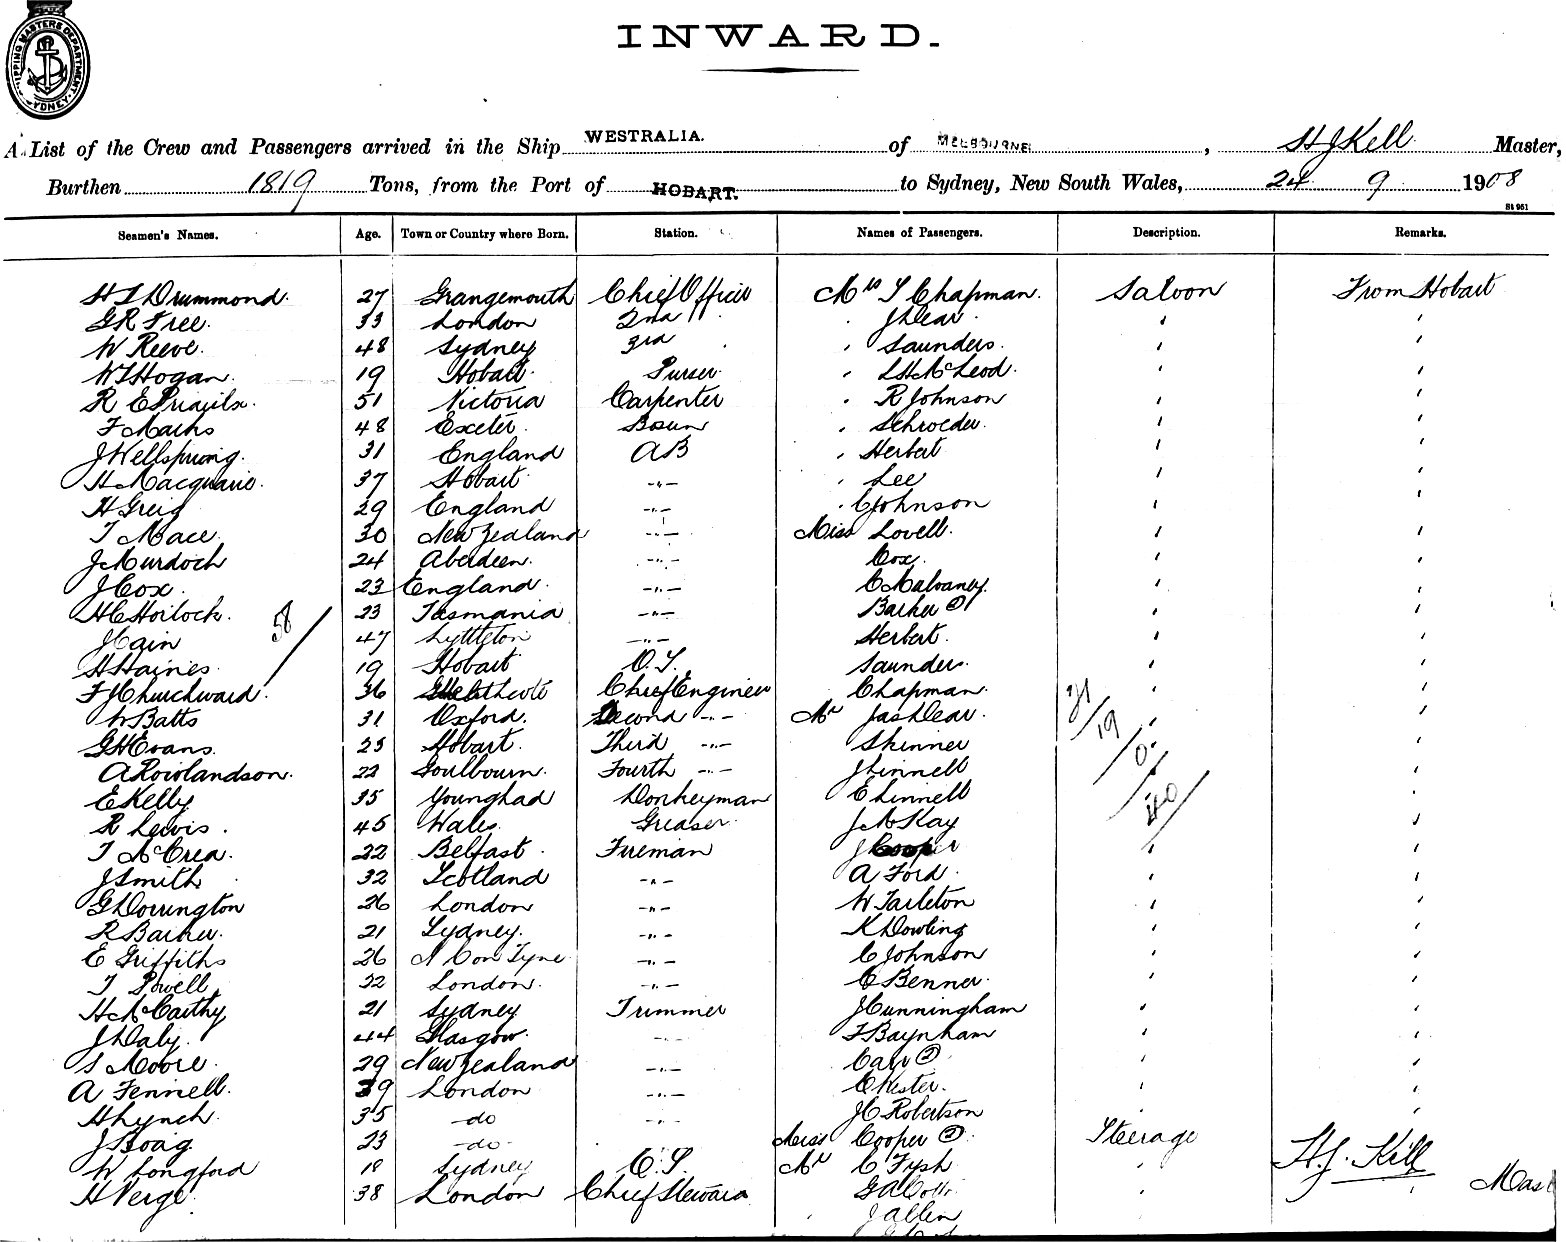 SHIPPING MASTERS DEPARTMENT SYDNEY
INWARD.
A List of the Crew and Passengers arrived in the Ship WESTRALIA. of MELBOURNE, H J Kell Master,
Burthen 1819 Tons, from the Port of HOBART. to Sydney, New South Wales, 24 9 1908
St 961
Seamen's Names. Age. Town or Country where Born. Station. Names of Passengers. Description. Remarks.
H L Drummond. 27 Grangemouth Chief Officer Mrs T Chapman. Saloon From Hobart
G R Free. 33 London 2nd " J Dear. " "
W Reeve. 48 Sydney 3rd " " Saunders. " "
W T Hogan. 19 Hobart. Purser. " L H McLeod. " "
R E 51 Victoria Carpenter " R Johnson " "
F Marks 48 Exeter. Bosun " Schroeder. " "
J Wellspring. 31 England AB " Herbert " "
H Macquarie. 37 Hobart. -"- " Lee " "
H Greig 29 England -"- " C Johnson " "
T Mace. 30 New Zealand -"- Miss Lovell. " "
J Murdoch 24 Aberdeen. -"- Cox. " "
J Cox. 23 England. -"- C Mulvaney. " "
H C Horlock. 58 23 Tasmania -"- Barker (2) " "
J Cain 47 Lyttleton -"- Herbert. " "
H Haines 19 Hobart O.S. Saunders. " "
F J Churchward. 36 Chief Engineer Chapman. 21 " "
W Batts 31 Oxford. Second -"- Mr Jas Dear. 19 " "
G H Evans. 25 Hobart. Third -"- Skinner 0 " "
A Rowlandson. 22 Goulbourn. Fourth -"- J Linnell " "
E Kelly 35 Younghad Donkeyman E Linnell 40 " "
R Lewis. 45 Wales. Greaser. J McKay "
T McCrea. 22 Belfast. Fireman J Cooper " "
J Smith 32 Scotland -"- A Ford. " "
G Dorrington 26 London -"- W Tarleton " "
R Barker. 21 Sydney. -"- K Dowling " "
E Griffiths 26 N C on Tyne -"- C Johnson " "
T Powell 22 London. -"- C Benner. " "
H McCarthy 21 Sydney Trimmer J Cunningham " "
J Daly. 44 Glasgow. -"- F Baynham " "
S Moore. 29 New Zealand -"- Carr (2) " "
A Fennell. 39 London -"- Chester. " "
H Lynch. 35 -do -"- J C Robertson " "
J Boag 23 -do- Miss Cooper (2) Steerage
W Longford 18 Sydney O.S. Mr C Fysh " H.J. Kell
H Verge. 38 London Chief Steward G A " " Mast
J Allen